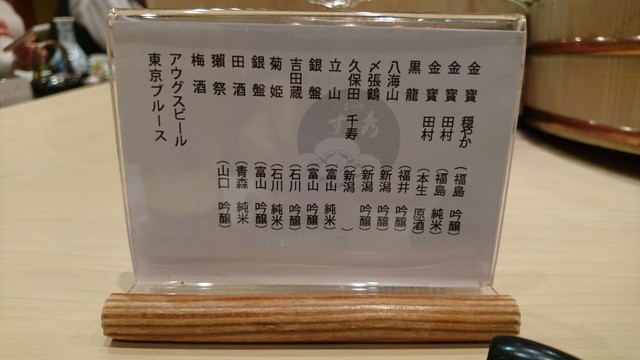 金寳 穏やか （福島 吟醸）
金寳 田村 （福島 純米）
金寳 田村 （本生 原酒）
黒龍 （福井 吟醸）
八海山 （新潟 吟醸）
〆張鶴 （新潟 吟醸）
久保田 千寿 （新潟 ）
立山 （富山 純米）
銀盤 （富山 吟醸）
吉田蔵 （石川 吟醸）
菊姫 （石川 純米）
銀盤 （富山 吟醸）
田酒 （青森 純米）
獺祭 （山口 吟醸）
梅酒
アウグスビール
東京ブルース